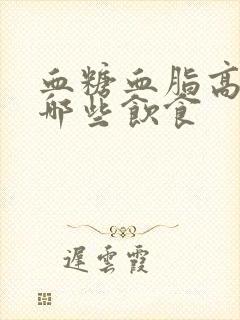 血糖血脂高
哪些飲食
遲雲霞